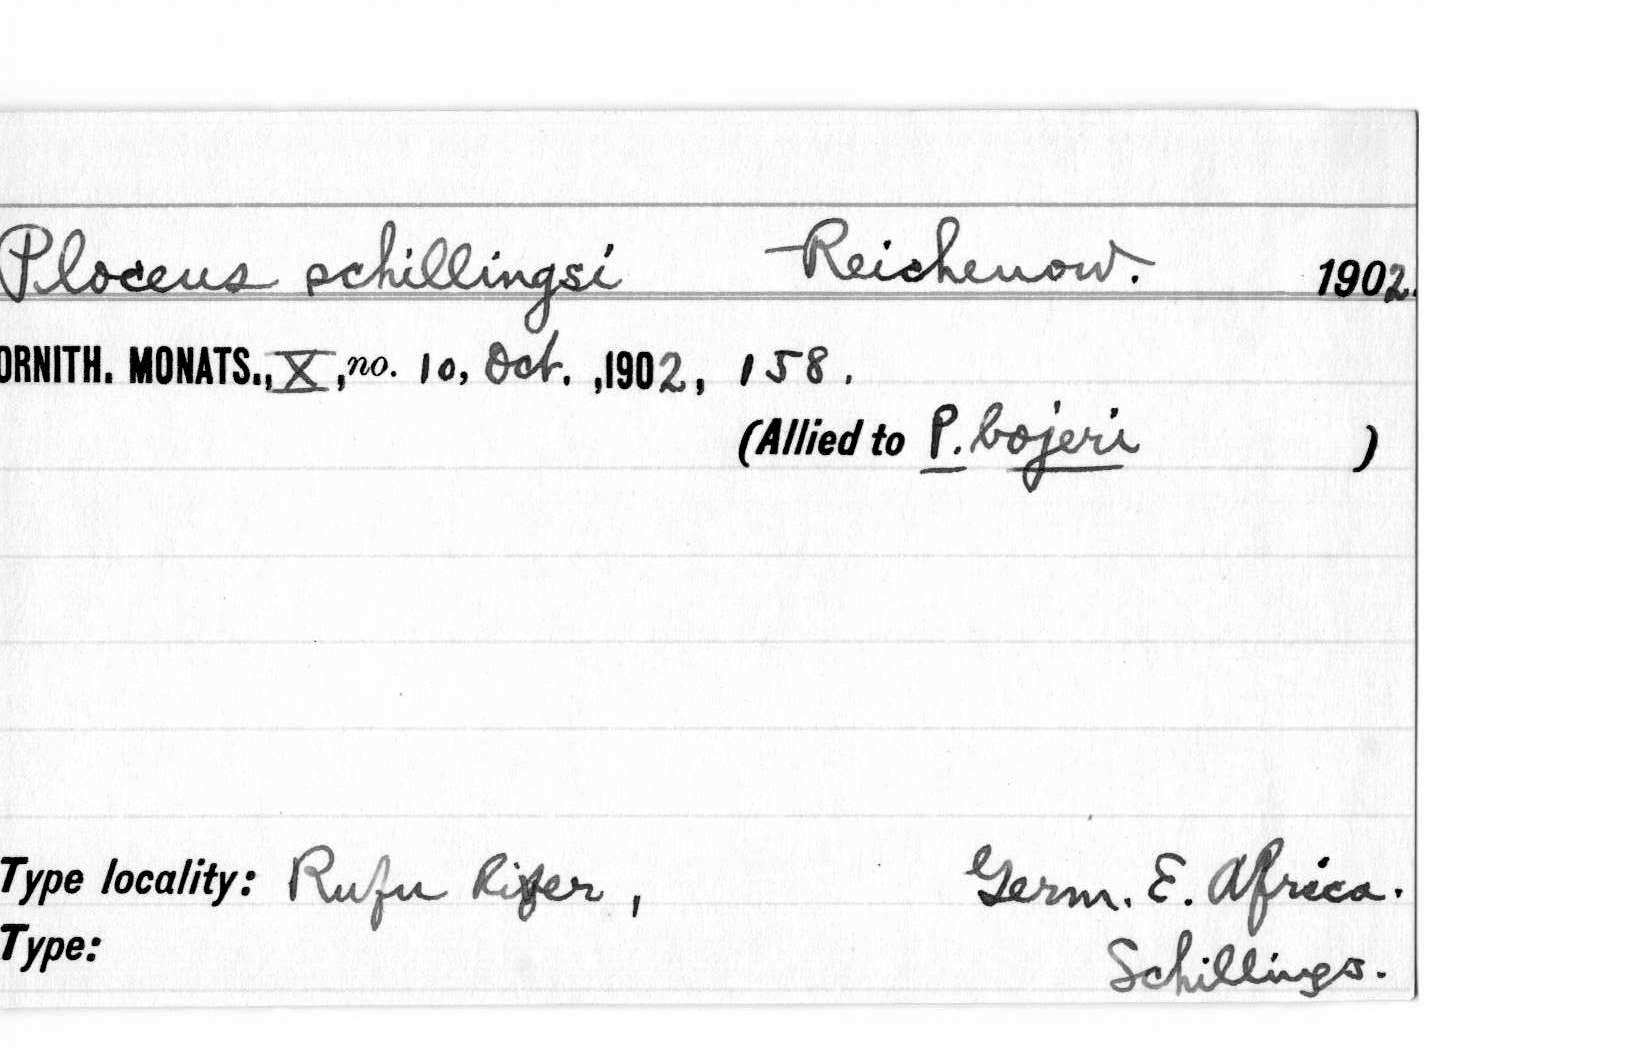 Ploceus schillingsi Reichenow. 1902.
ORNITH. MONATS., X, no. 10, Oct. , 1902, 158.
(Allied to P. bojeri )
Type locality: Rufu River, Germ. E. Africa.
Type: Schillings.